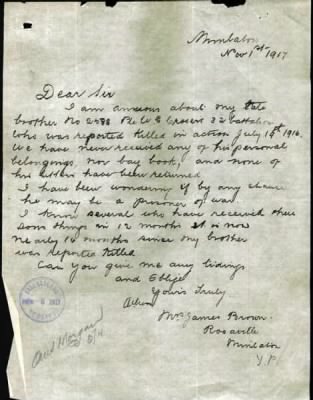 Minlaton
Nov 1st 1917
Dear Sir
I am anxious about my late
brother No 2578 Pte W G 32 battalion
Who was reported Killed in action July 18th 1916.
We have never received any of his personal
belongings nor pay book, and none of
his letters have been returned
I have been wondering if by any chance
he may be a prisoner of war.
I know several who have received their
sons things in 12 months it is now
nearly 14 months since my brother
was reported Killed
Can you give me any tidings
and Oblige
Yours Truly
Mrs James Brown
Rosaville
Minlaton
Y.P.